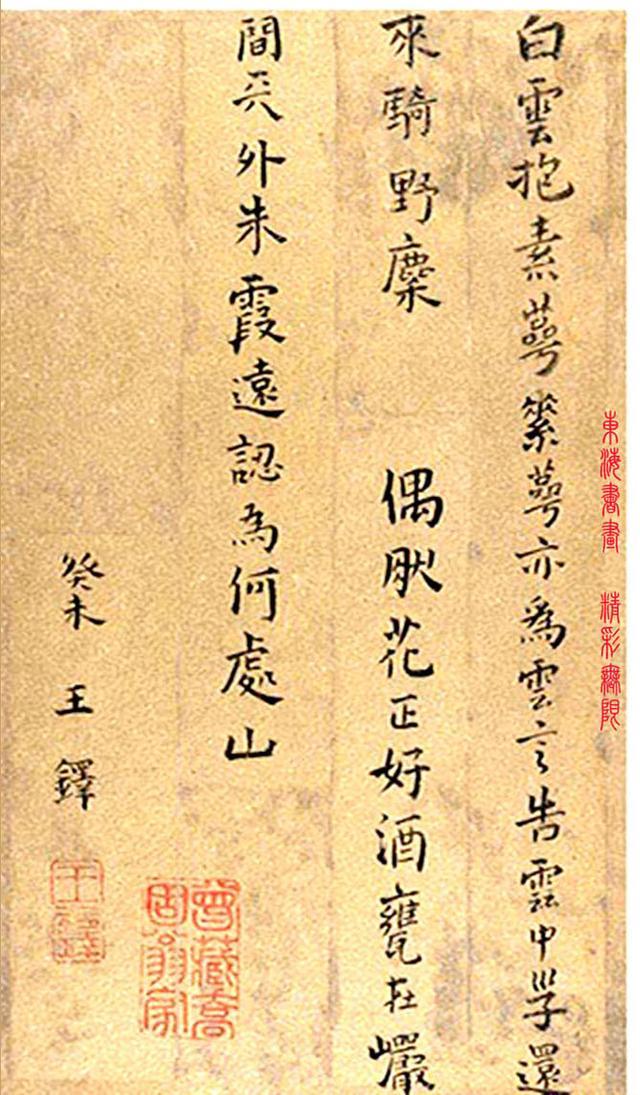 東海書畫 精彩無限
白雲抱素蕚縈蕚亦為雲言告雲中㜽還
來騎野麋 偶耽花正好酒甕在巖
間天外朱霞遠認為何處山
癸未 王鐸
曾藏
翁家
王鐸